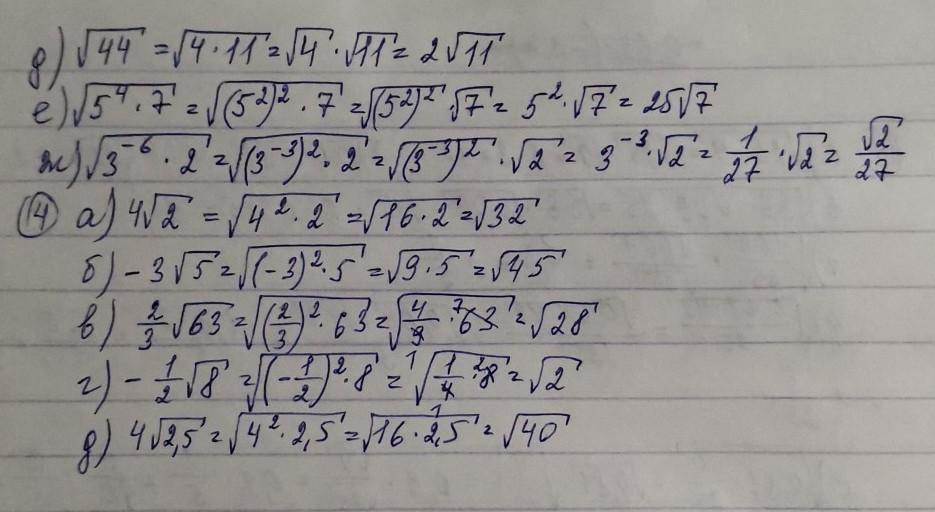 д) √44 = √4·11 = √4 · √11 = 2√11
е) √5⁴·7 = √(5²)²·7 = √(5²)² · √7 = 5²·√7 = 25√7
ж) √3⁻⁶·2 = √(3⁻³)²·2 = √(3⁻³)² · √2 = 3⁻³·√2 = 1/27 · √2 = √2/27
14 а) 4√2 = √4²·2 = √16·2 = √32
б) -3√5 = √(-3)²·5 = √9·5 = √45
в) 2/3 √63 = √(2/3)²·63 = √4/9 · 63 7 = √28
г) -1/2 √8 = √(-1/2)²·8 = 1 √1/4 · 2 8 = √2
д) 4√2,5 = √4²·2,5 = √16·2,5 1 = √40